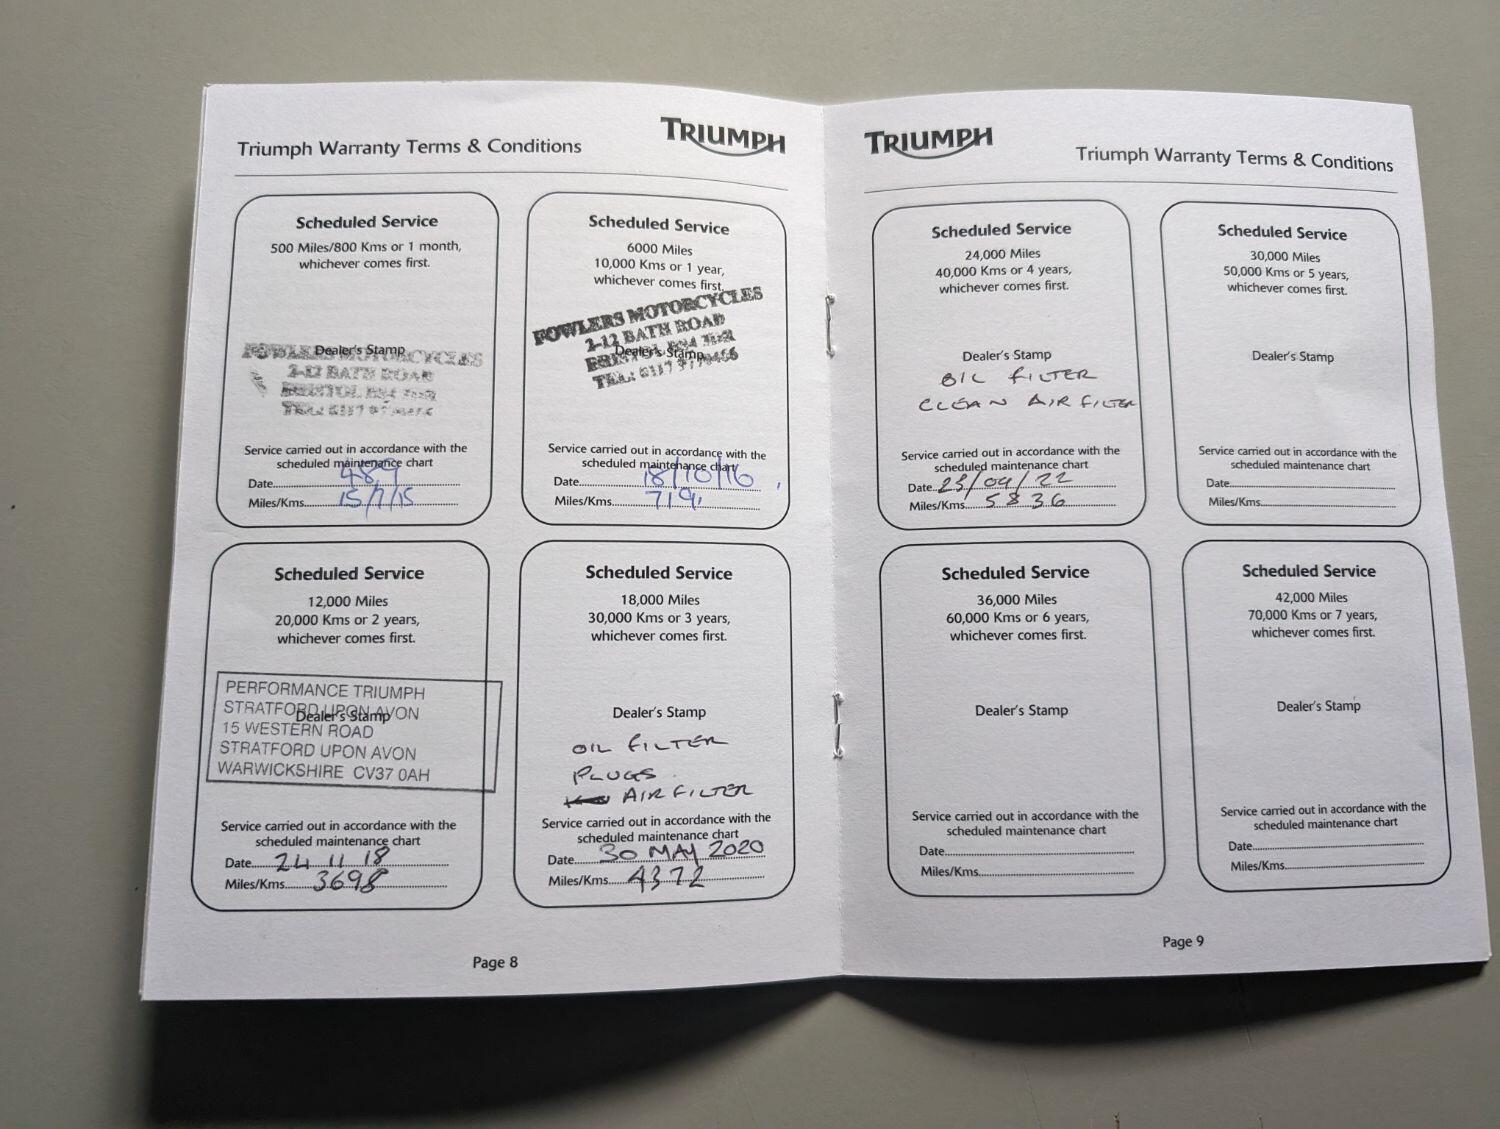 Triumph Warranty Terms & Conditions
TRIUMPH
Scheduled Service
500 Miles/800 Kms or 1 month,
whichever comes first.
Dealer's Stamp
FOWLERS MOTORCYCLES
2-12 BATH ROAD
BRISTOL BS4
TEL: 0117
Service carried out in accordance with the
scheduled maintenance chart
Date 489
Miles/Kms 15/7/15
Scheduled Service
6000 Miles
10,000 Kms or 1 year,
whichever comes first.
FOWLERS MOTORCYCLES
2-12 BATH ROAD
Dealer's Stamp
BRISTOL BS4
TEL: 0117
Service carried out in accordance with the
scheduled maintenance chart
Date 18/10/16
Miles/Kms
Scheduled Service
12,000 Miles
20,000 Kms or 2 years,
whichever comes first.
PERFORMANCE TRIUMPH
STRATFORD UPON AVON
Dealer's Stamp
15 WESTERN ROAD
STRATFORD UPON AVON
WARWICKSHIRE CV37 0AH
Service carried out in accordance with the
scheduled maintenance chart
Date 24 11 18
Miles/Kms 3698
Scheduled Service
18,000 Miles
30,000 Kms or 3 years,
whichever comes first.
Dealer's Stamp
OIL FILTER
PLUGS
AIR FILTER
Service carried out in accordance with the
scheduled maintenance chart
Date 30 MAY 2020
Miles/Kms 4372
Page 8
TRIUMPH
Triumph Warranty Terms & Conditions
Scheduled Service
24,000 Miles
40,000 Kms or 4 years,
whichever comes first.
Dealer's Stamp
OIL FILTER
CLEAN AIR FILTER
Service carried out in accordance with the
scheduled maintenance chart
Date /04/22
Miles/Kms 5836
Scheduled Service
30,000 Miles
50,000 Kms or 5 years,
whichever comes first.
Dealer's Stamp
Service carried out in accordance with the
scheduled maintenance chart
Date
Miles/Kms
Scheduled Service
36,000 Miles
60,000 Kms or 6 years,
whichever comes first.
Dealer's Stamp
Service carried out in accordance with the
scheduled maintenance chart
Date
Miles/Kms
Scheduled Service
42,000 Miles
70,000 Kms or 7 years,
whichever comes first.
Dealer's Stamp
Service carried out in accordance with the
scheduled maintenance chart
Date
Miles/Kms
Page 9